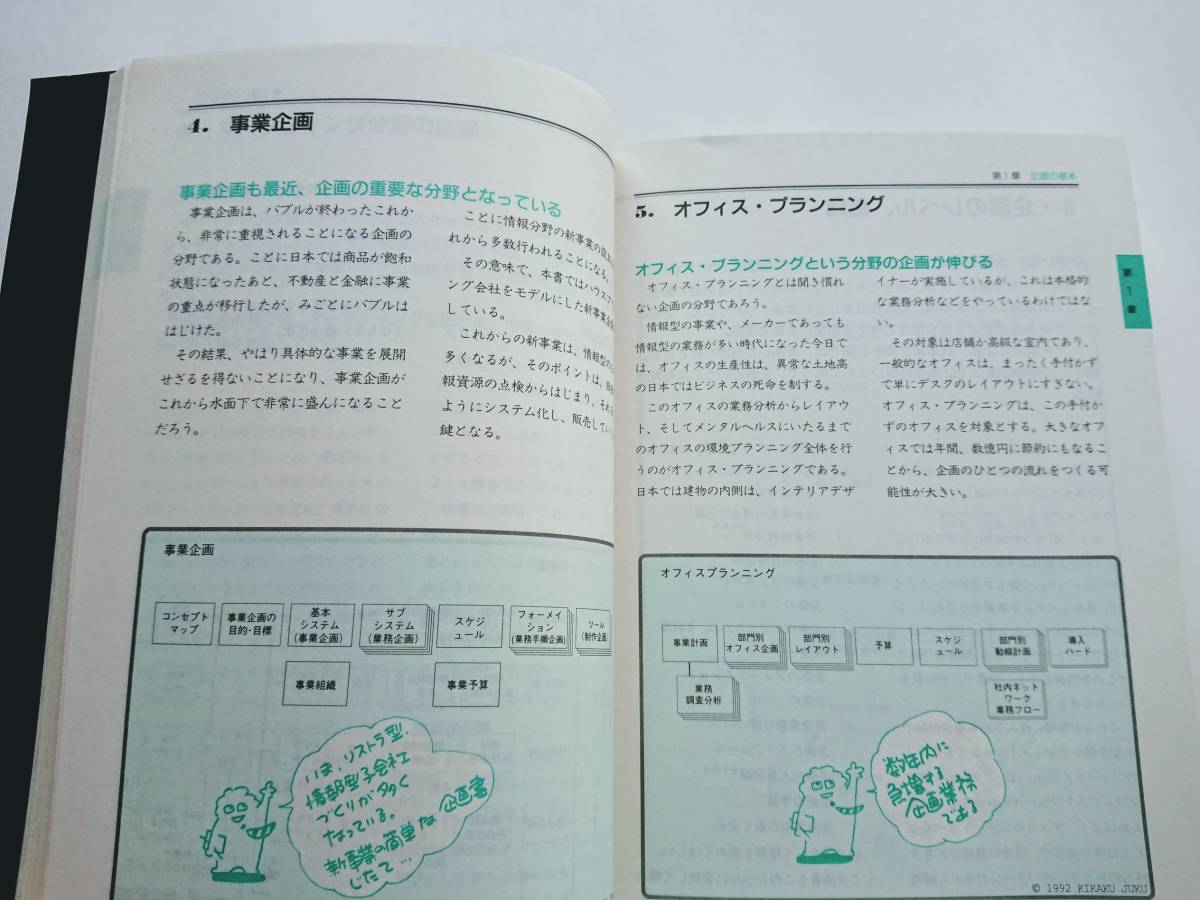 4. 事業企画
事業企画も最近、企画の重要な分野となっている
事業企画は、バブルが終わったこれか
ら、非常に重視されることになる企画の
分野である。ことに日本では商品が飽和
状態になったあと、不動産と金融に事業
の重点が移行したが、みごとにバブルは
はじけた。
その結果、やはり具体的な事業を展開
せざるを得ないことになり、事業企画が
これから水面下で非常に盛んになること
だろう。
ことに情報分野の新事業の設
れから多数行われることになる。
その意味で、本書ではハウス
ング会社をモデルにした新事業企
している。
これからの新事業は、情報型の
多くなるが、そのポイントは、
報資源の点検からはじまり、それ
ようにシステム化し、販売してい
鍵となる。
事業企画
コンセプト
マップ
事業企画の
目的・目標
基本
システム
(事業企画)
サブ
システム
(業務企画)
スケジ
ュール
フォーメイ
ション
(業務手順企画)
ツール
(制作企画
事業組織
事業予算
いま、リストラ型、
情報型子会社
づくりが多く
なっている。
新事業の簡単な企画書
じたて…
第1章 企画の基本
5. オフィス・プランニング
オフィス・プランニングという分野の企画が伸びる
オフィス・プランニングとは聞き慣れ
ない企画の分野であろう。
情報型の事業や、メーカーであっても
情報型の業務が多い時代になった今日で
は、オフィスの生産性は、異常な土地高
の日本ではビジネスの死命を制する。
このオフィスの業務分析からレイアウ
ト、そしてメンタルヘルスにいたるまで
のオフィスの環境プランニング全体を行
うのがオフィス・プランニングである。
日本では建物の内側は、インテリアデザ
イナーが実施しているが、これは本格的
な業務分析などをやっているわけではな
い。
その対象は店舗か高級な室内であり、
一般的なオフィスは、まったく手付かず
で単にデスクのレイアウトにすぎない。
オフィス・プランニングは、この手付か
ずのオフィスを対象とする。大きなオフ
ィスでは年間、数億円に節約にもなるこ
とから、企画のひとつの流れをつくる可
能性が大きい。
第1章
オフィスプランニング
事業計画
部門別
オフィス企画
部門別
レイアウト
予算
スケジ
ュール
部門別
動線計画
導入
ハード
業務
調査分析
社内ネット
ワーク
業務フロー
数年内に
急増する
企画業務
である
© 1992 KIKAKU JUKU